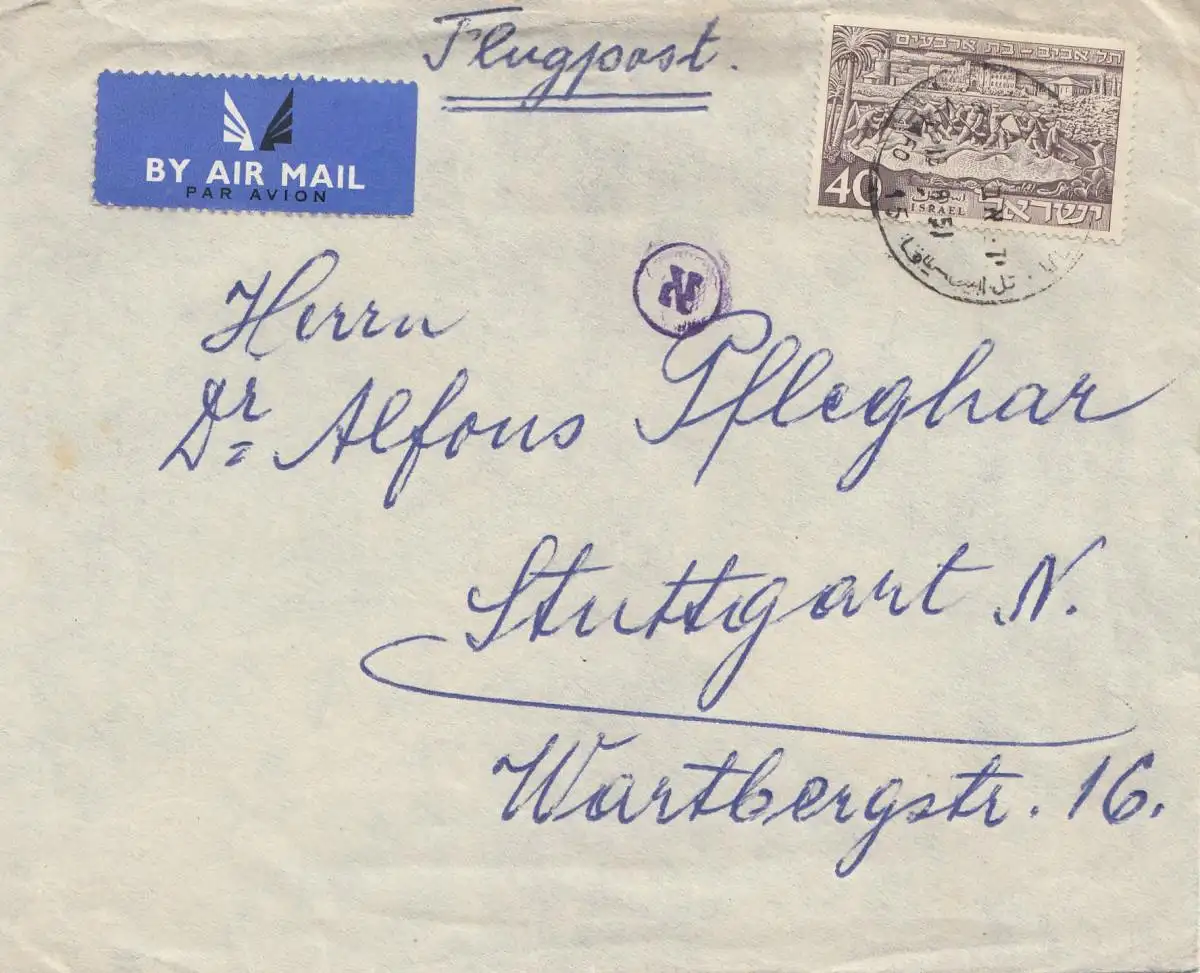 Flugpost.
BY AIR MAIL
PAR AVION
תל אביב - בת ארבעים
40
ISRAEL
ישראל
15
51
א
Herrn
Dr Alfons Pfleghar
Stuttgart N.
Wartbergstr. 16.